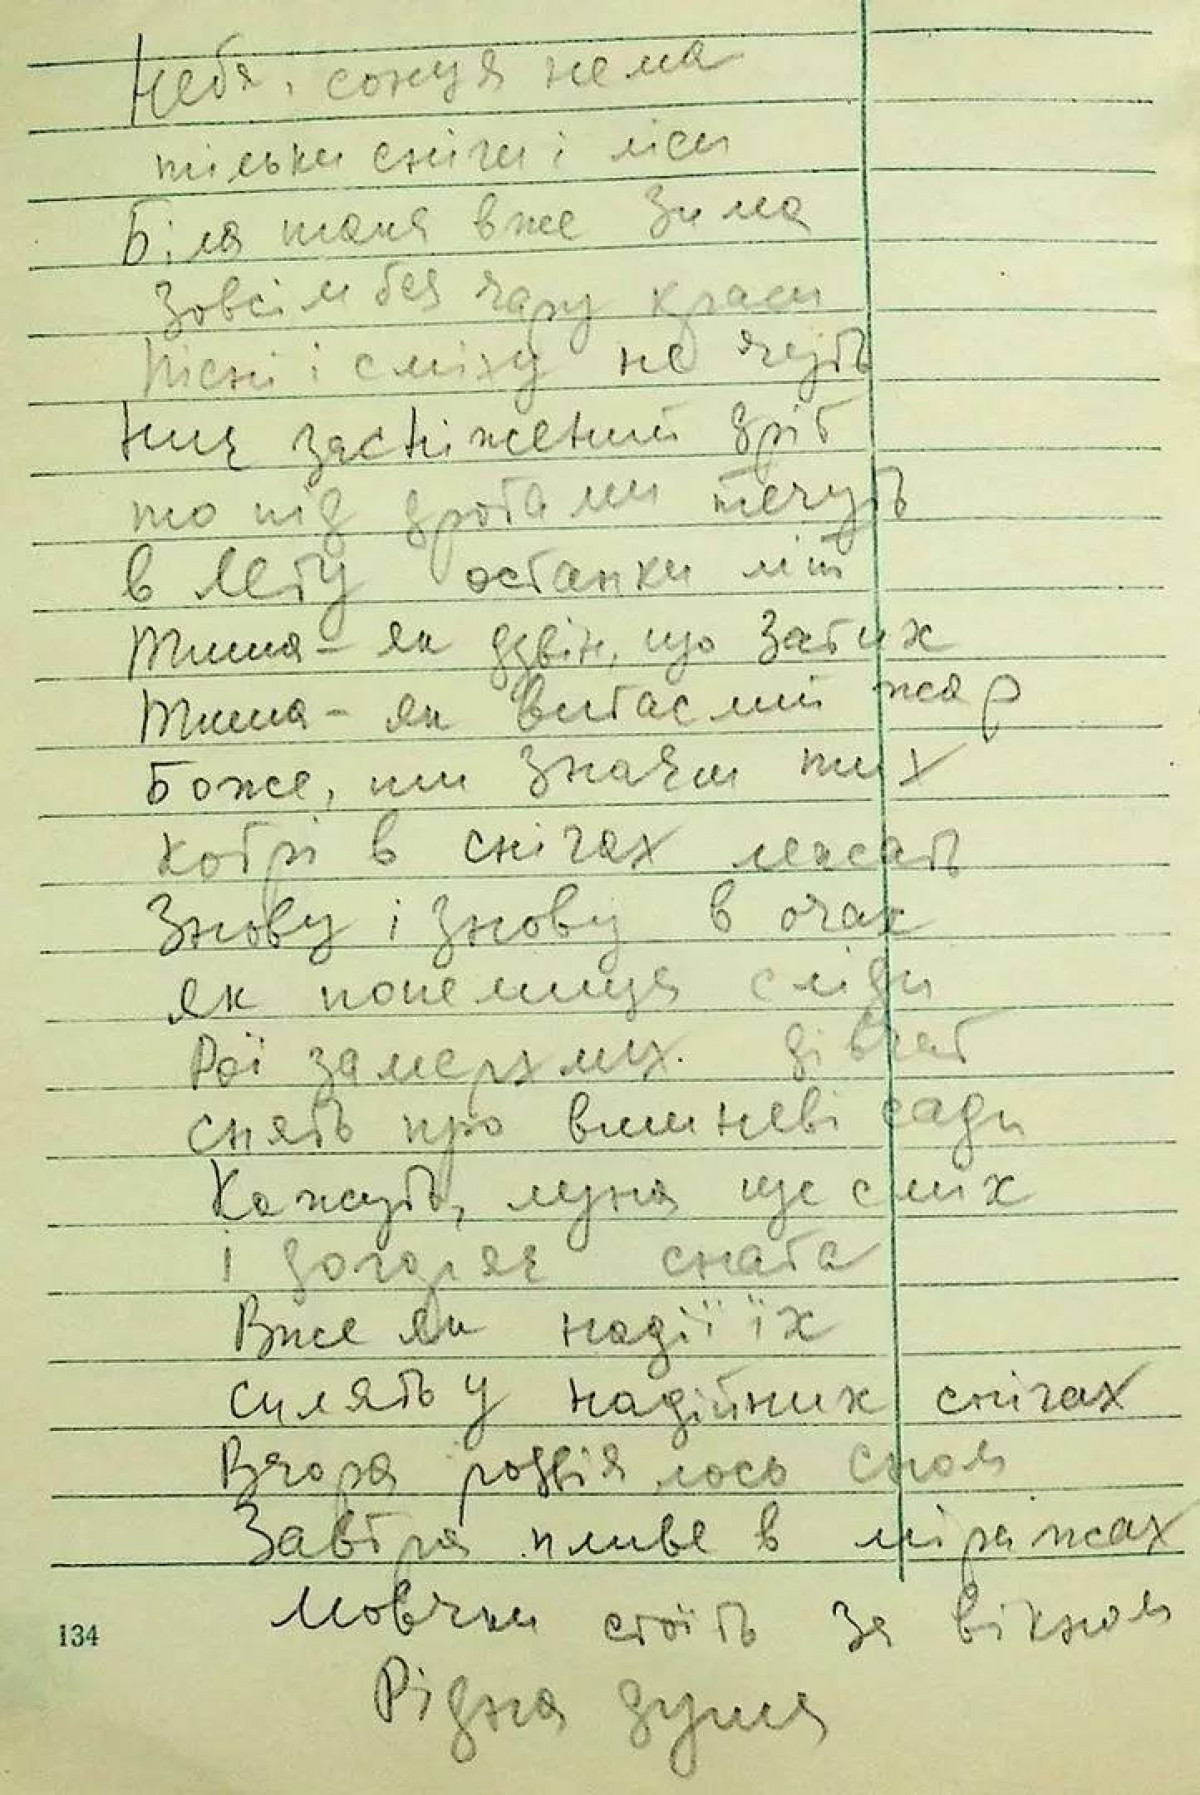 Неба, сонця нема
тільки сніги і ліси
Біла така вже зима
Зовсім без чару краси
Пісні і сміху не чуть
Ниє засніжений дріт
то під дротами течуть
в Лету останки літ
Тиша - як дзвін, що затих
Тиша - як жар
Боже, ти знаєш тих
котрі в снігах лежать
Знову і знову в очах
як попелища сліди
Рої замерзлих дівчат
снять про вишневі сади
Кажуть, луна ще сміх
і догоряє
Вже як надії їх
сплять у надійних снігах
Вчора розвіялось сном
Завтра пливе в міражах
Мовчки стоїть за вікном
134
Рідна душа